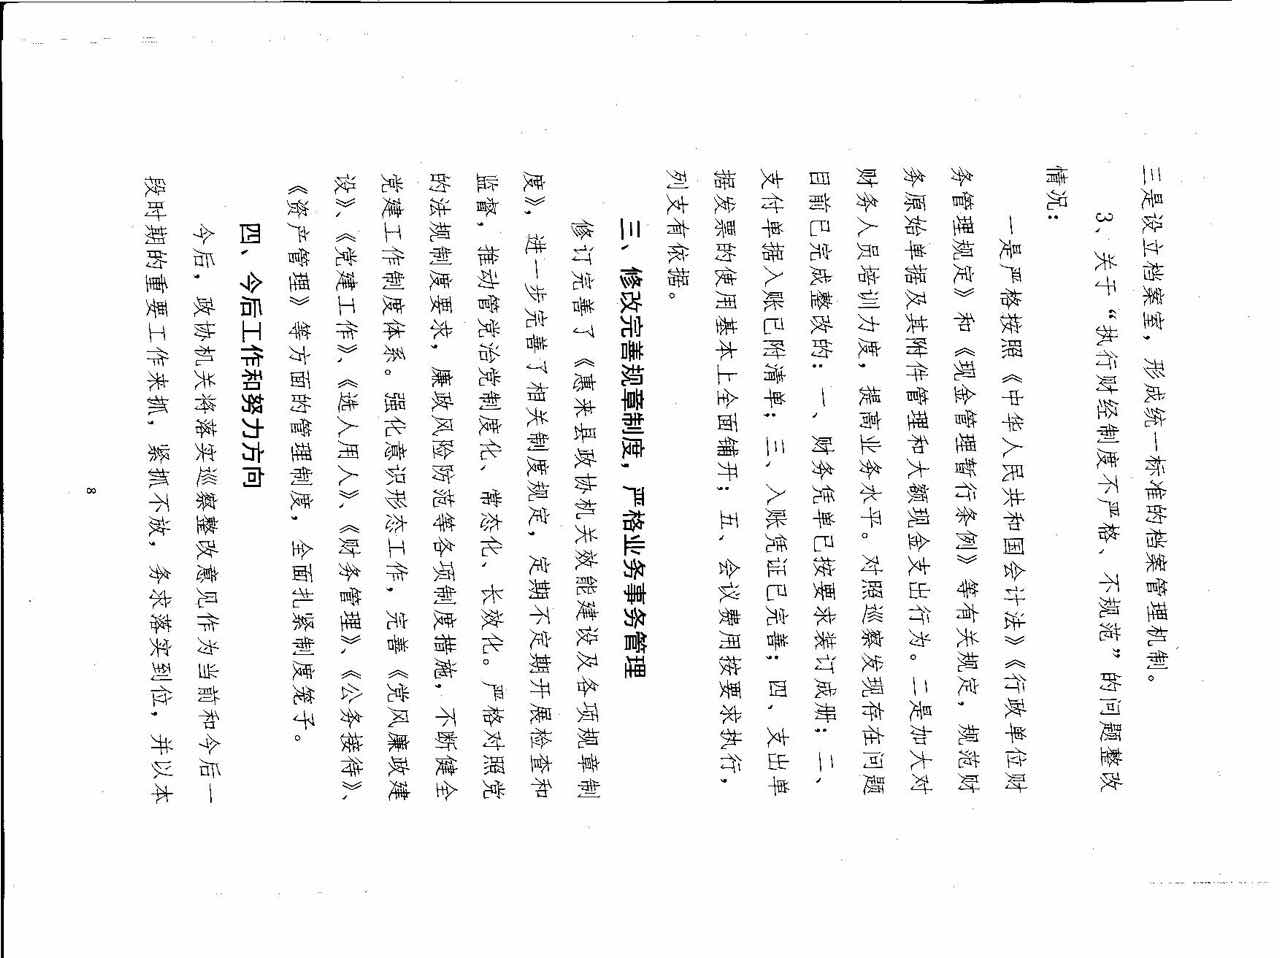 三是设立档案室，形成统一标准的档案管理机制。
3、关于“执行财经制度不严格、不规范”的问题整改
情况：
一是严格按照《中华人民共和国会计法》《行政单位财
务管理规定》和《现金管理暂行条例》等有关规定，规范财
务原始单据及其附件管理和大额现金支出行为。二是加大对
财务人员培训力度，提高业务水平。对照巡察发现存在问题
目前已完成整改的：一、财务凭单已按要求装订成册；二、
支付单据入账已附清单；三、入账凭证已完善；四、支出单
据发票的使用基本上全面铺开；五、会议费用按要求执行，
列支有依据。
三、修改完善规章制度，严格业务事务管理
修订完善了《惠来县政协机关效能建设及各项规章制
度》，进一步完善了相关制度规定，定期不定期开展检查和
监督，推动管党治党制度化、常态化、长效化。严格对照党
的法规制度要求，廉政风险防范等各项制度措施，不断健全
党建工作制度体系。强化意识形态工作，完善《党风廉政建
设》、《党建工作》、《选人用人》、《财务管理》、《公务接待》、
《资产管理》等方面的管理制度，全面扎紧制度笼子。
四、今后工作和努力方向
今后，政协机关将落实巡察整改意见作为当前和今后一
段时期的重要工作来抓，紧抓不放，务求落实到位，并以本
8